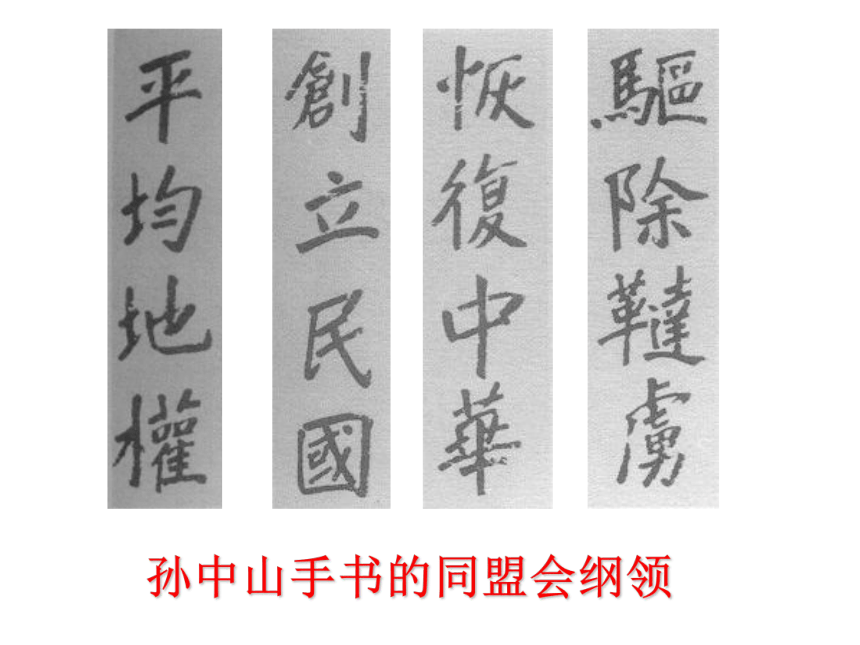 驅除韃虜
恢復中華
創立民國
平均地權
孙中山手书的同盟会纲领